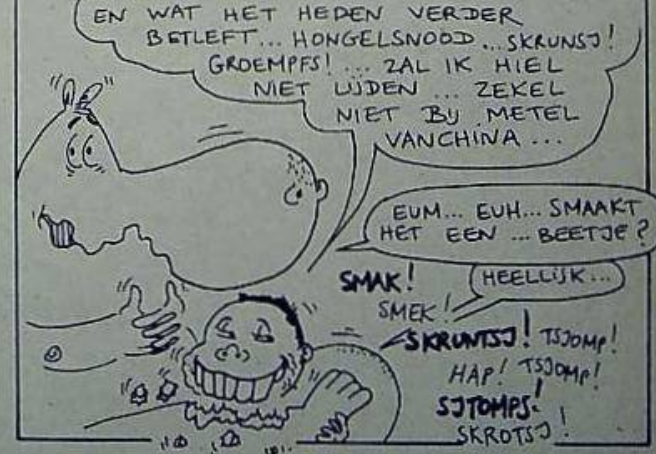 EN WAT HET HEDEN VERDER
BETLEFT... HONGELSNOOD... SKRUNSJ!
GROEMPFS! ... ZAL IK HIEL
NIET LIJDEN ... ZEKEL
NIET BIJ METEL
VANCHINA ...
EUM... EUH... SMAAKT
HET EEN ... BEETJE?
SMAK!
HEELLIJK...
SMEK!
SKRUNTSJ! TSJOMP!
HAP! TSJOMP!
SJTOMPS!
SKROTSJ!